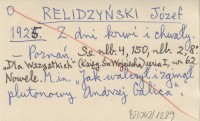 RELIDZYŃSKI Józef
1925. Z dni krwi i chwały.
— Poznań. Ss nlb. 4, 150, nlb. 2. 8°
"Dla Wszystkich" (Księg. Św. Wojciecha) seria I, nr 62.
Nowele. M. in. "Jak walczył i zginął
plutonowy Andrzej Galica"